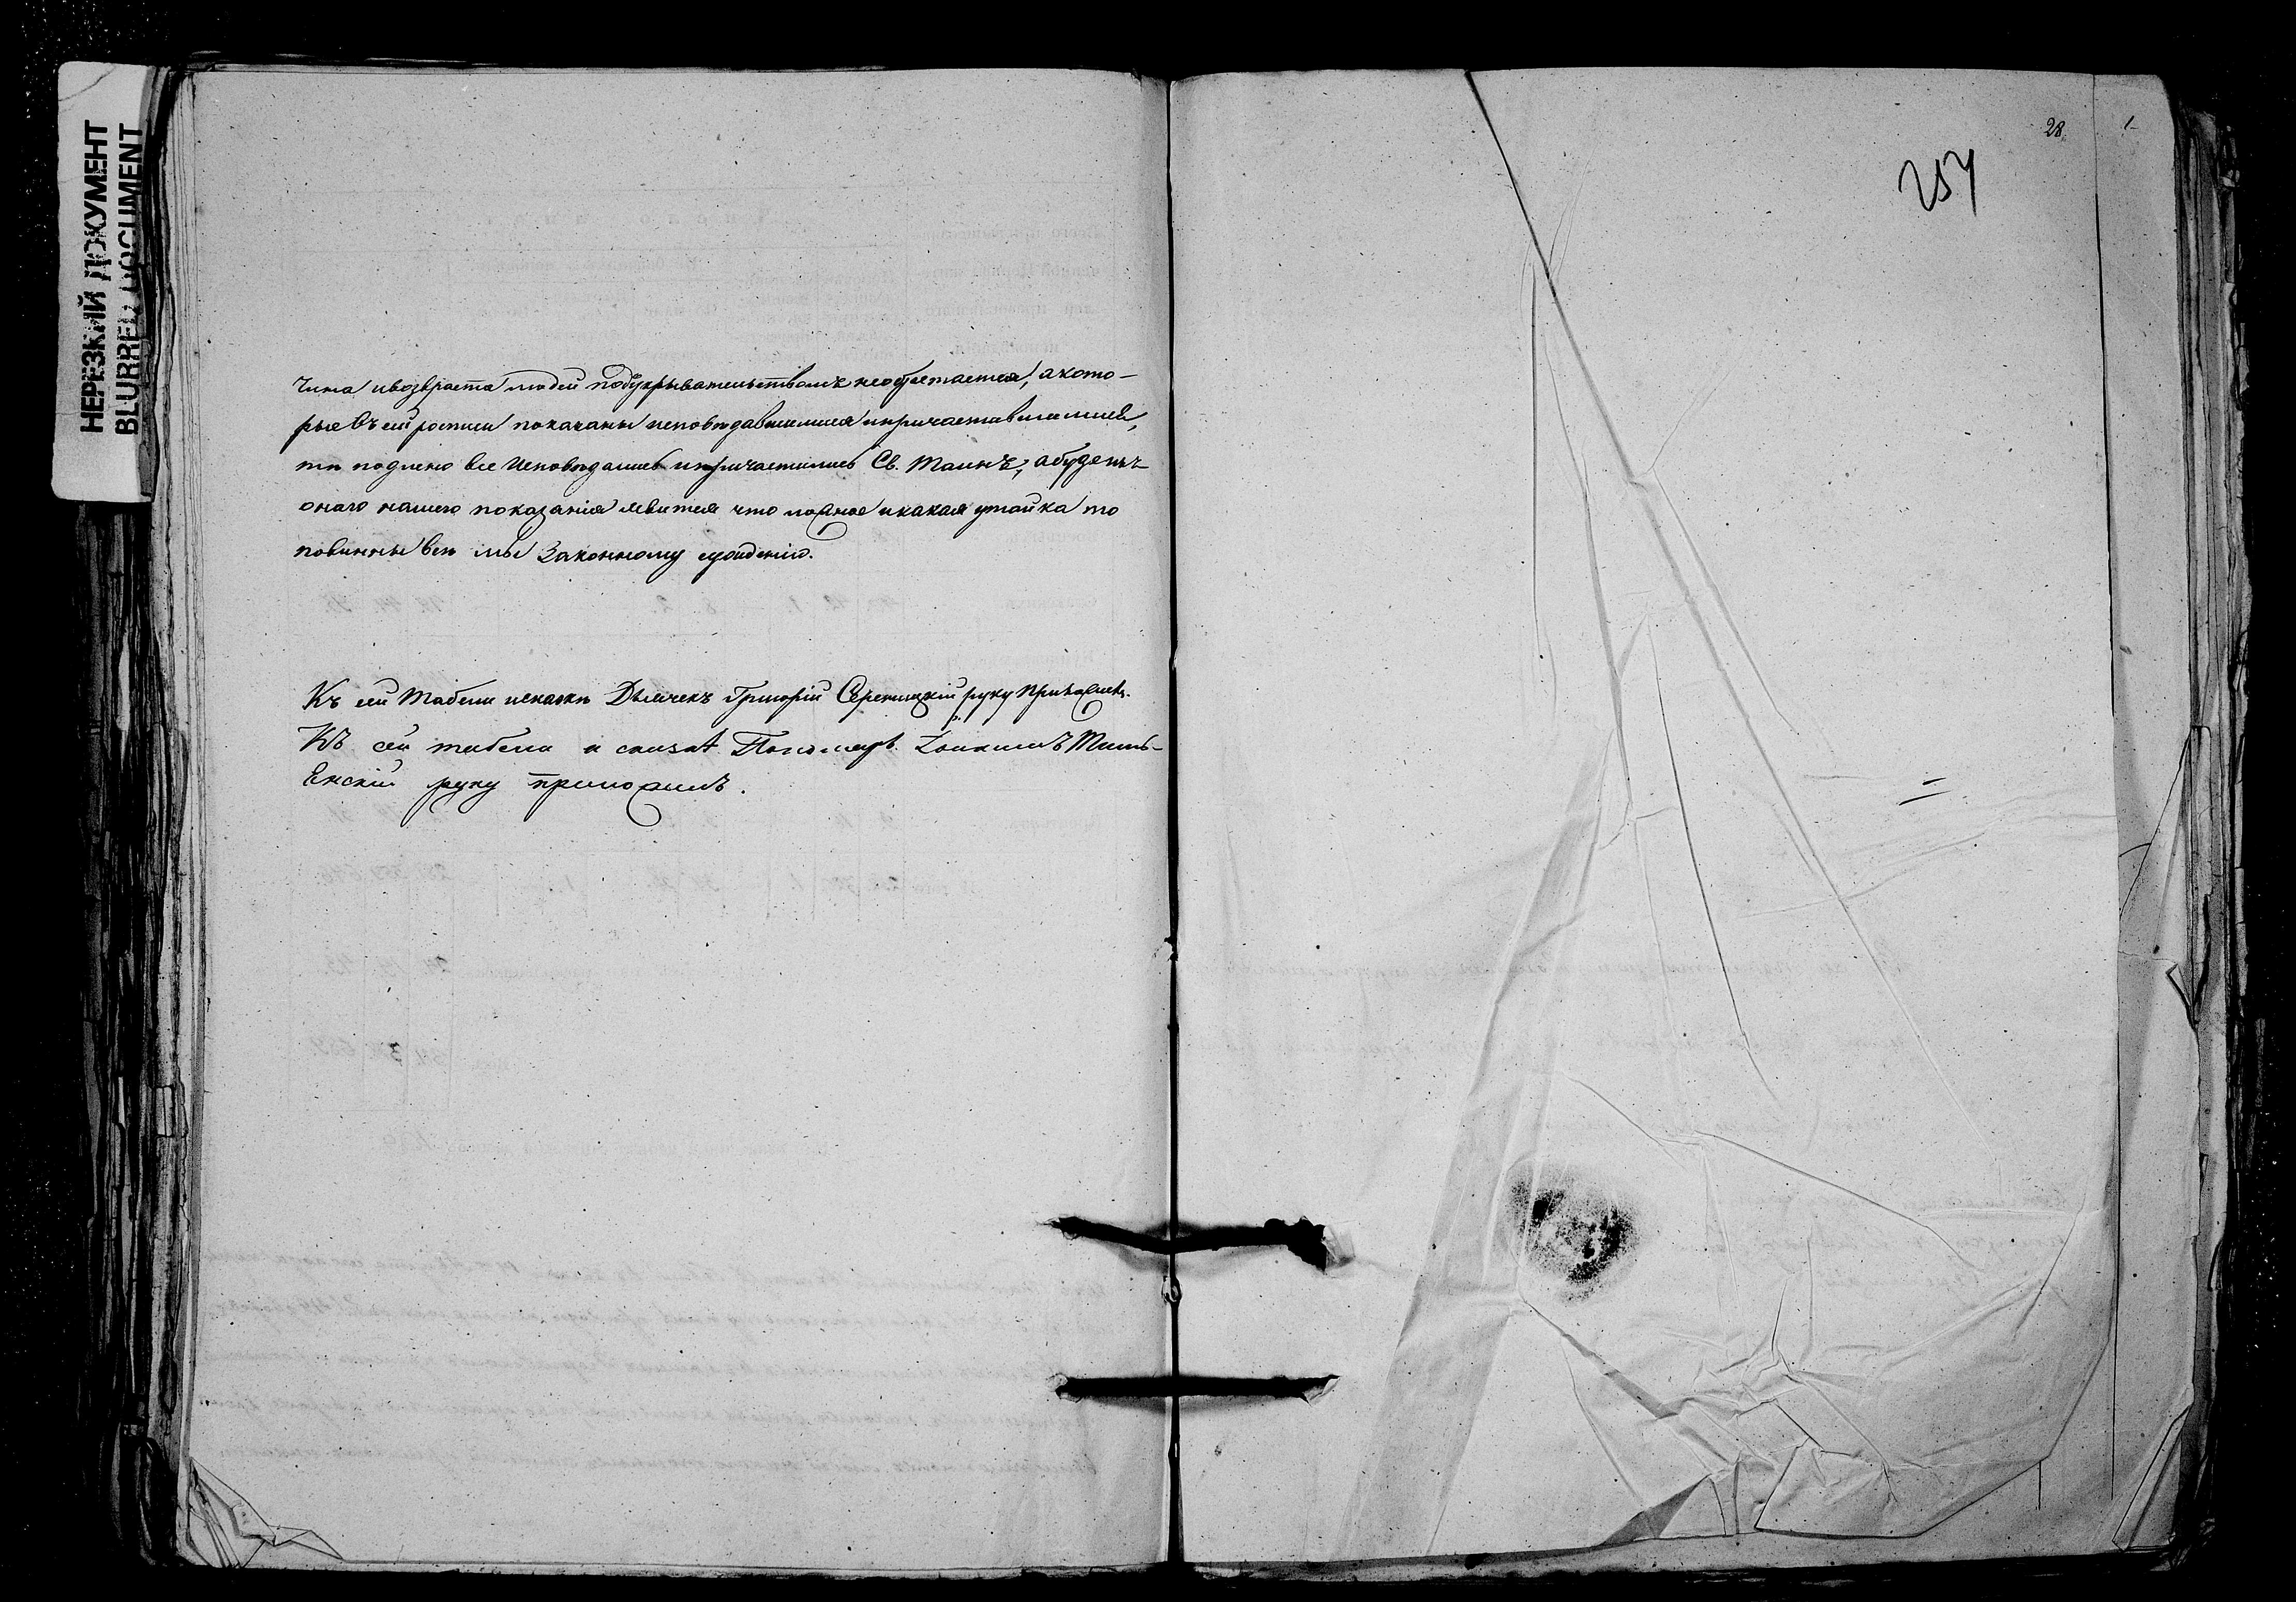 НЕРЕЗКИЙ ДОКУМЕНТ
BLURRED DOCUMENT
28
257
Чина ивозвраста людей подукрывательствомъ неостается, акото-
рые Въ сей росписи показаны исповѣдавшимися ипричаставшимися,
тѣ подлено все Исповѣдались ипричастились Св. Таинъ, абуде изъ
онаго нашего показанія явится что ложное икакая утайка то
повинны всѣ мы Законному сужденію.
Къ сей Табели искаскѣ Дьячекъ Григорій руку Приложилъ.
Къ сей табели и сказкѣ Пономарь Іоакимъ
руку приложилъ.